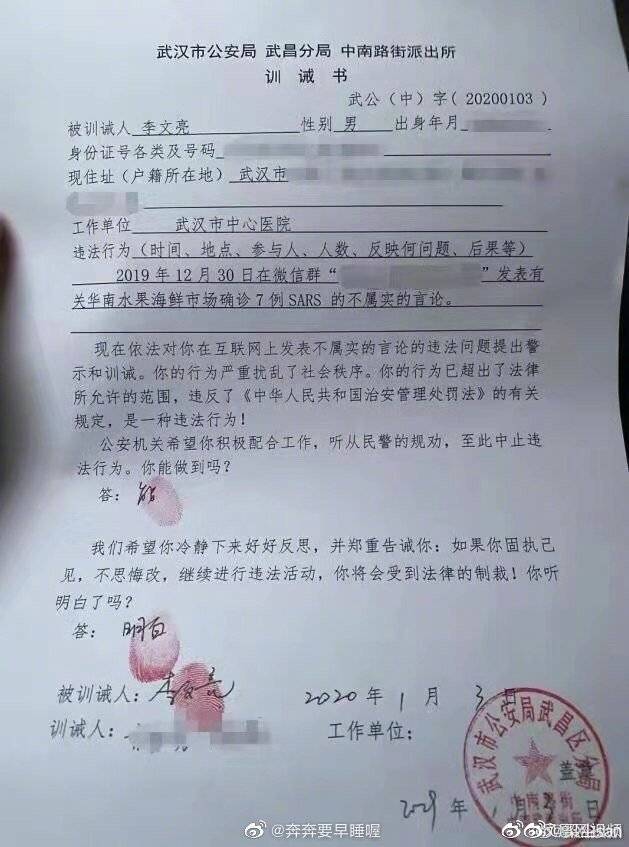 武汉市公安局 武昌分局 中南路街派出所
训 诫 书
武公（中）字（20200103）
被训诫人 李文亮 性别 男 出身年月
身份证号各类及号码
现住址（户籍所在地） 武汉市
工作单位 武汉市中心医院
违法行为（时间、地点、参与人、人数、反映何问题、后果等）
2019年12月30日在微信群“ ”发表有
关华南水果海鲜市场确诊7例SARS的不属实的言论。
现在依法对你在互联网上发表不属实的言论的违法问题提出警
示和训诫。你的行为严重扰乱了社会秩序。你的行为已超出了法律
所允许的范围，违反了《中华人民共和国治安管理处罚法》的有关
规定，是一种违法行为！
公安机关希望你积极配合工作，听从民警的规劝，至此中止违
法行为。你能做到吗？
答：能
我们希望你冷静下来好好反思，并郑重告诫你：如果你固执己
见，不思悔改，继续进行违法活动，你将会受到法律的制裁！你听
明白了吗？
答：明白
被训诫人：李文亮 2020年1月3日
训诫人： 工作单位：
武汉市公安局武昌区分局
盖章
中南路街
年1月3日
@奔奔要早睡喔